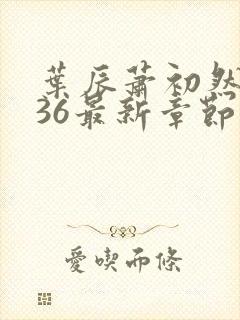 葉辰蕭初然
36最新章節
愛喫而條